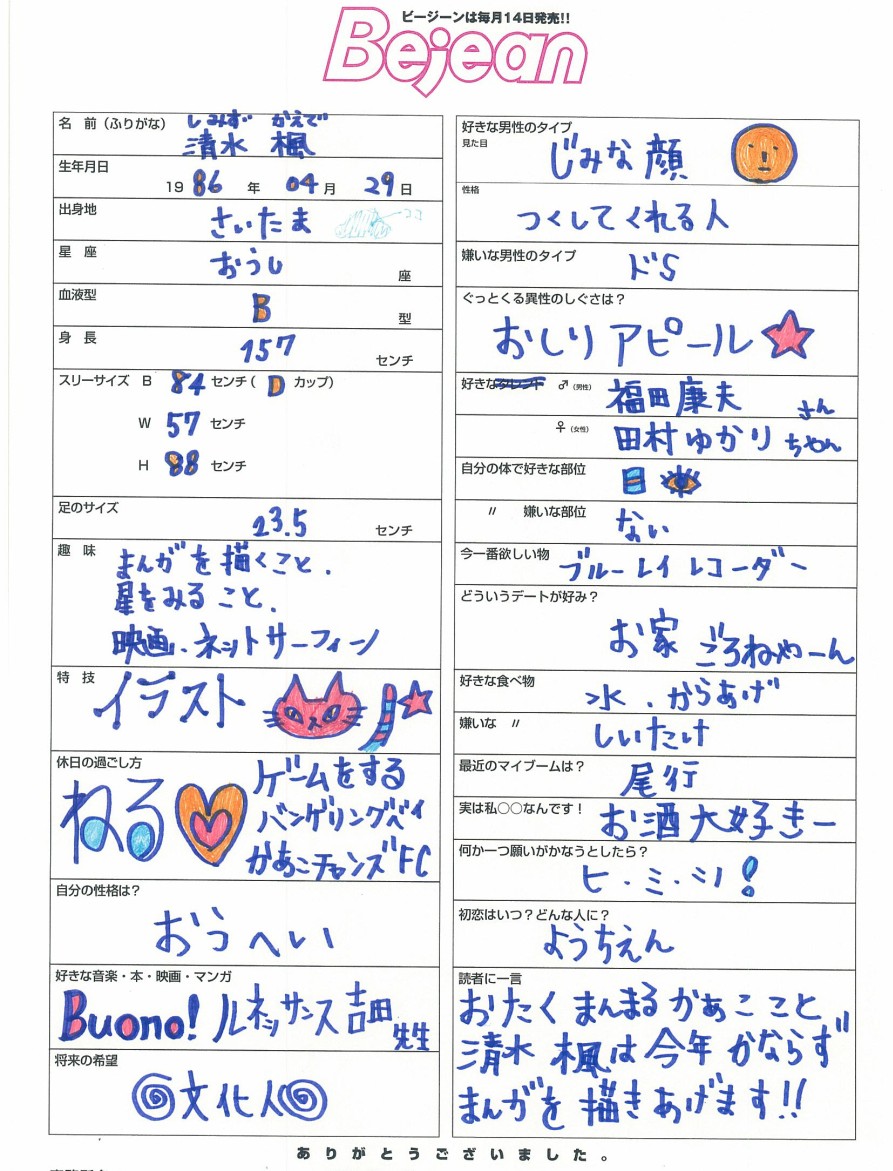 ビージーンは毎月14日発売!!
Bejean
名 前(ふりがな) しみず かえで
清水 楓
生年月日
19 86 年 04 月 29 日
出身地
さいたま ココ
星 座
おうし 座
血液型
B 型
身 長
157 センチ
スリーサイズ B 84 センチ( D カップ)
W 57 センチ
H 88 センチ
足のサイズ
23.5 センチ
趣 味
まんがを描くこと.
星をみること.
映画、ネットサーフィン
特 技
イラスト
休日の過ごし方
ねる
ゲームをする
バンゲリングベイ
かあこチャンズFC
自分の性格は?
おうへい
好きな音楽・本・映画・マンガ
Buono! ルネッサンス吉田先生
将来の希望
文化人
好きな男性のタイプ
見た目
じみな顔
性格
つくしてくれる人
嫌いな男性のタイプ
ドS
ぐっとくる異性のしぐさは?
おしりアピール
好きなタレント ♂(男性) 福田廉夫 さん
♀(女性) 田村ゆかりちゃん
自分の体で好きな部位
目
〃 嫌いな部位
ない
今一番欲しい物
ブルーレイレコーダー
どういうデートが好み?
お家 ごろねやーん
好きな食べ物
水、からあげ
嫌いな 〃
しいたけ
最近のマイブームは?
尾行
実は私○○なんです! お酒大好きー
何か一つ願いがかなうとしたら?
ヒ・ミ・ツ!
初恋はいつ?どんな人に?
ようちえん
読者に一言
おたくまんまるかあここと
清水楓は今年かならず
まんがを描きあげます!!
ありがとうございました。